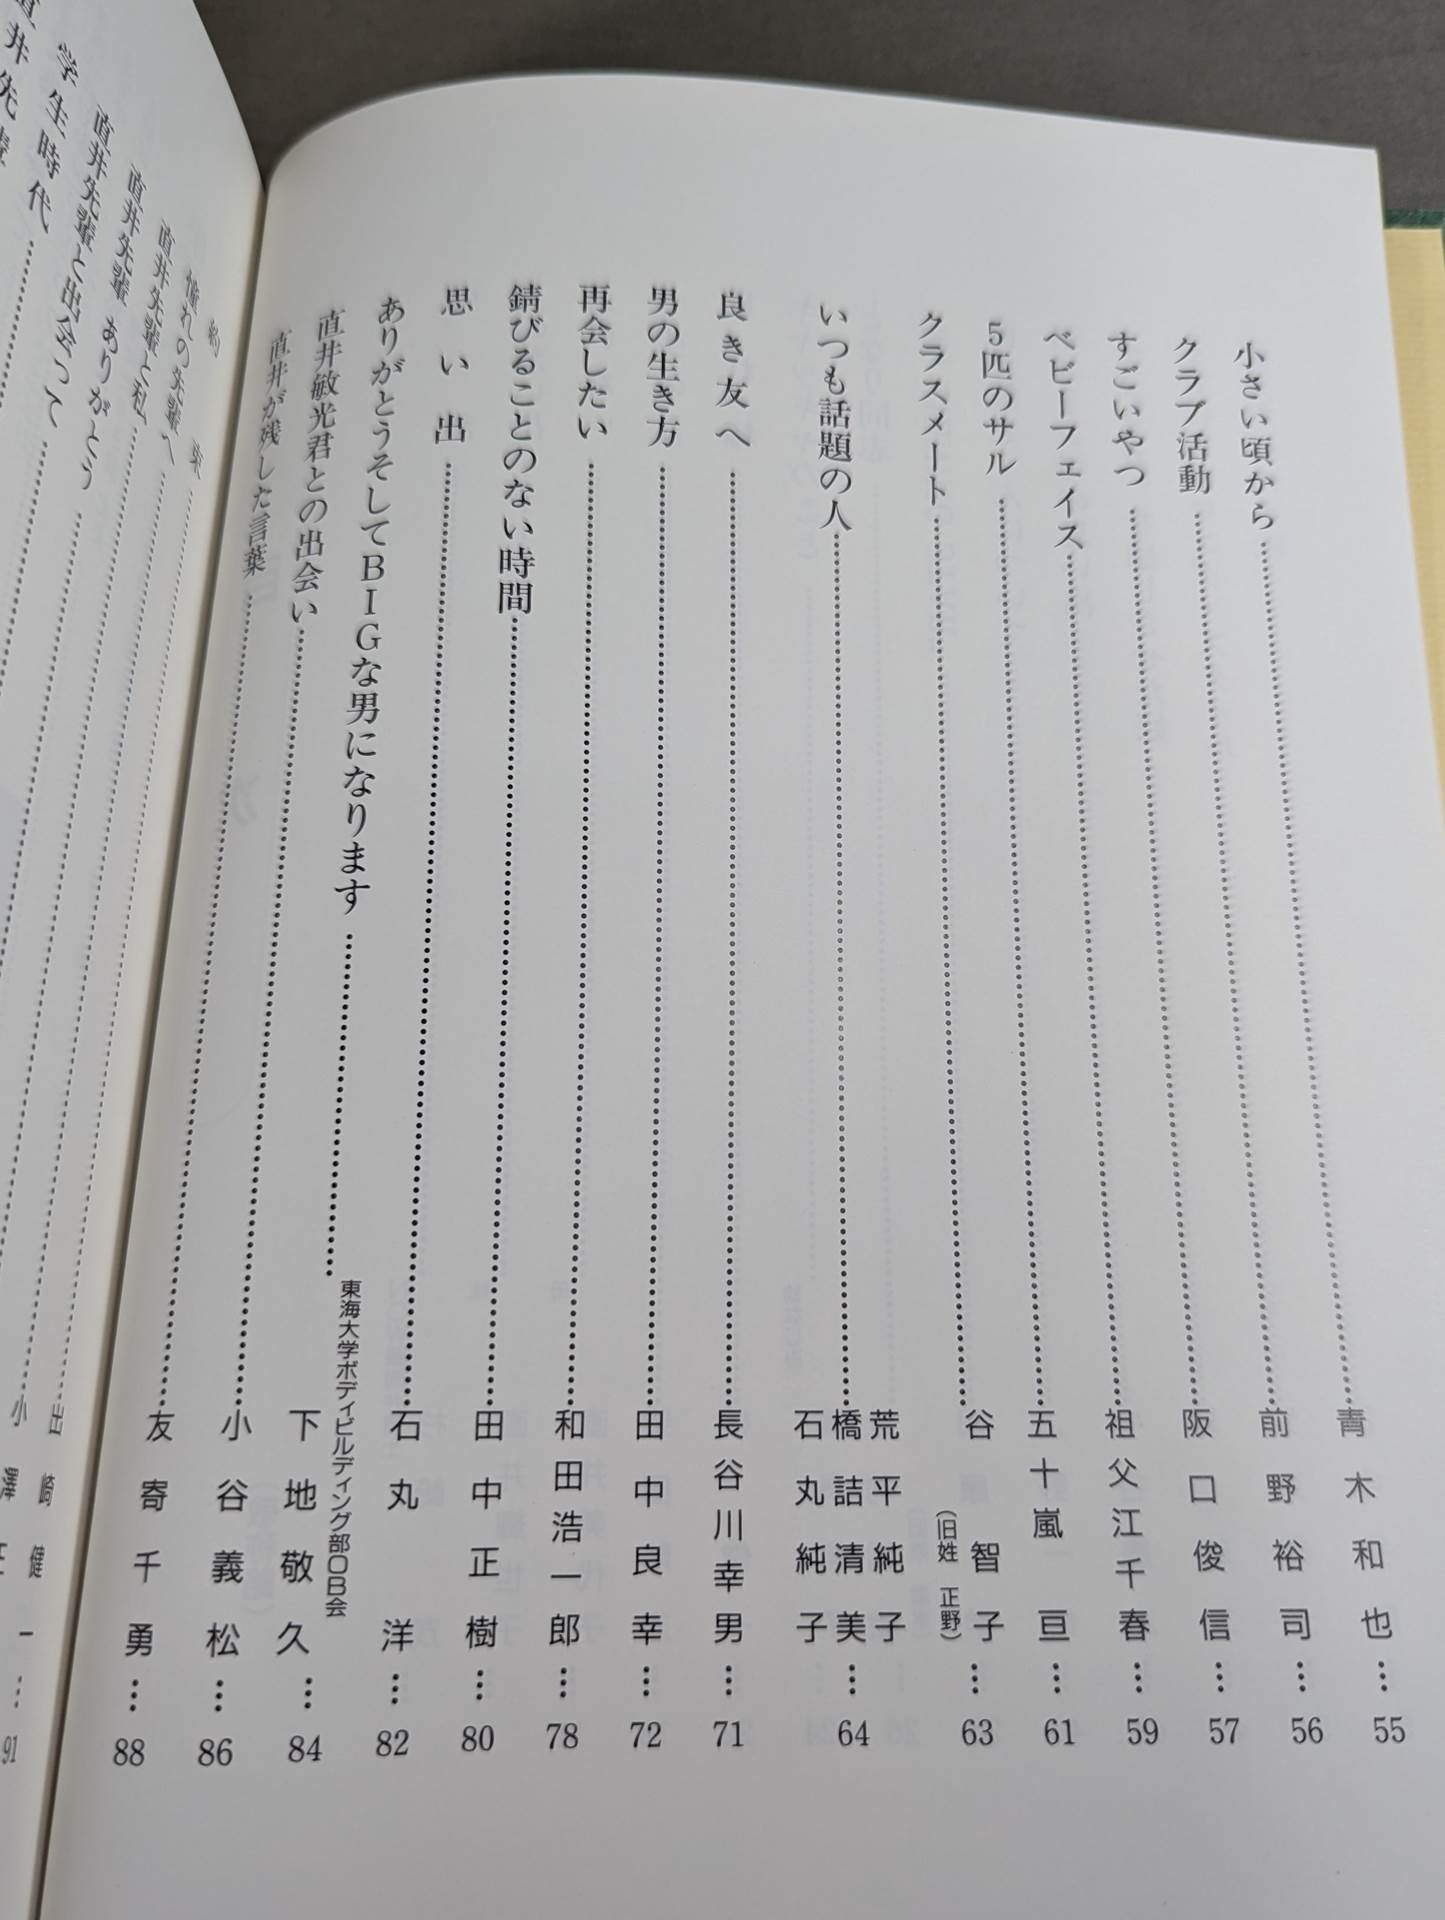 小さい頃から……青木和也…55
クラブ活動……前野裕司…56
すごいやつ……阪口俊信…57
ベビーフェイス……祖父江千春…59
5匹のサル……五十嵐亘…61
クラスメート……谷智子（旧姓 正野）…63
いつも話題の人……荒平純子 橋詰清美 石丸純子…64
良き友へ……長谷川幸男…71
男の生き方……田中良幸…72
再会したい……和田浩一郎…78
錆びることのない時間……田中正樹…80
思い出……石丸洋…82
ありがとうそしてBIGな男になります……東海大学ボディビルディング部OB会 下地敬久…84
直井敏光君との出会い……小谷義松…86
直井が残した言葉……友寄千勇…88
約束……出崎健
憧れの先輩へ……小澤
一…91
直井先輩と私……
直井先輩 ありがとう
直井先輩と出会って……
学生時代……
直井先輩